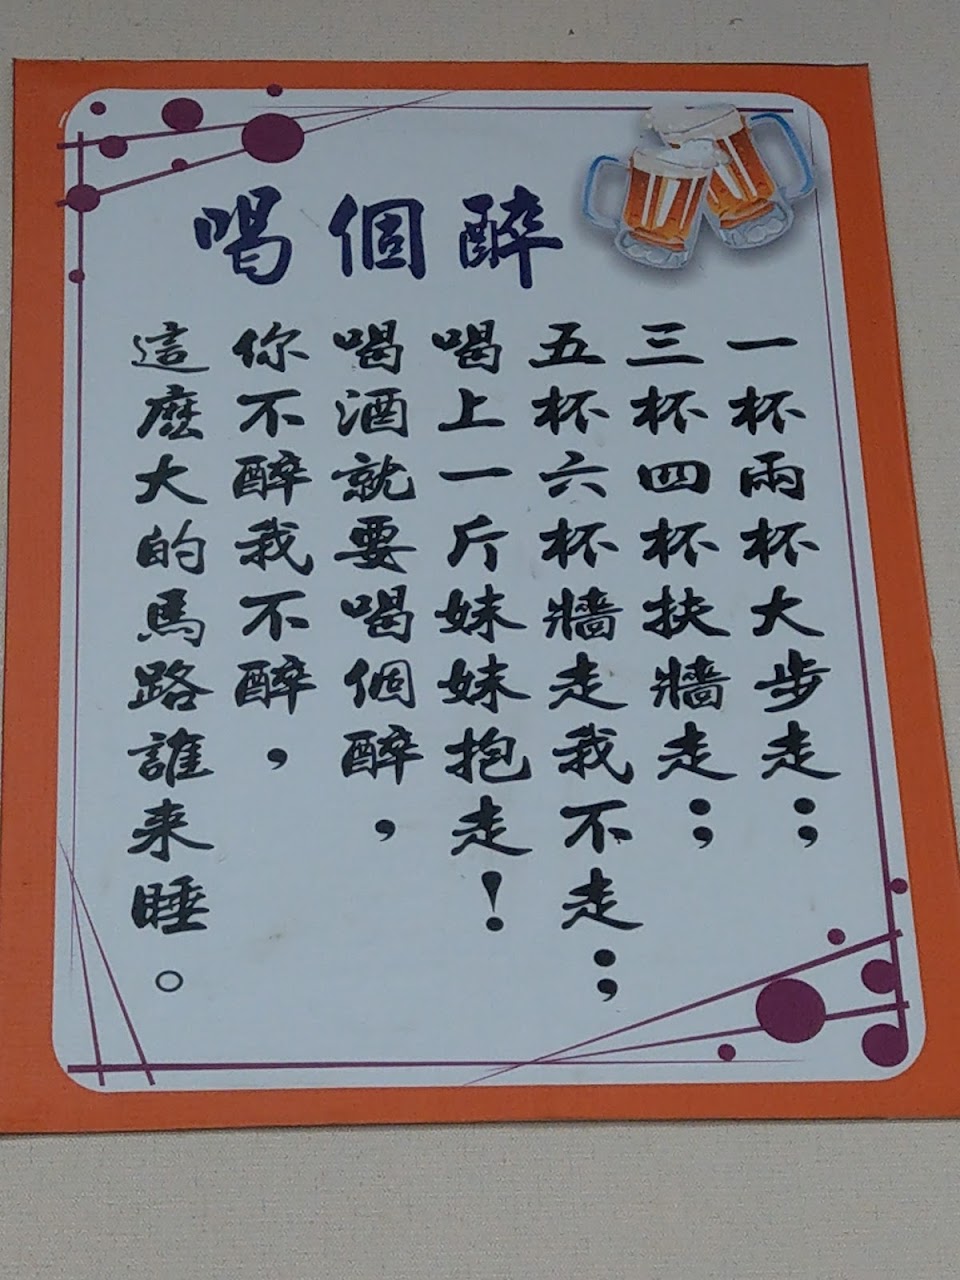 喝個醉
一杯兩杯大步走；
三杯四杯扶牆走；
五杯六杯牆走我不走；
喝上一斤妹妹抱走！
喝酒就要喝個醉，
你不醉我不醉，
這麼大的馬路誰来睡。